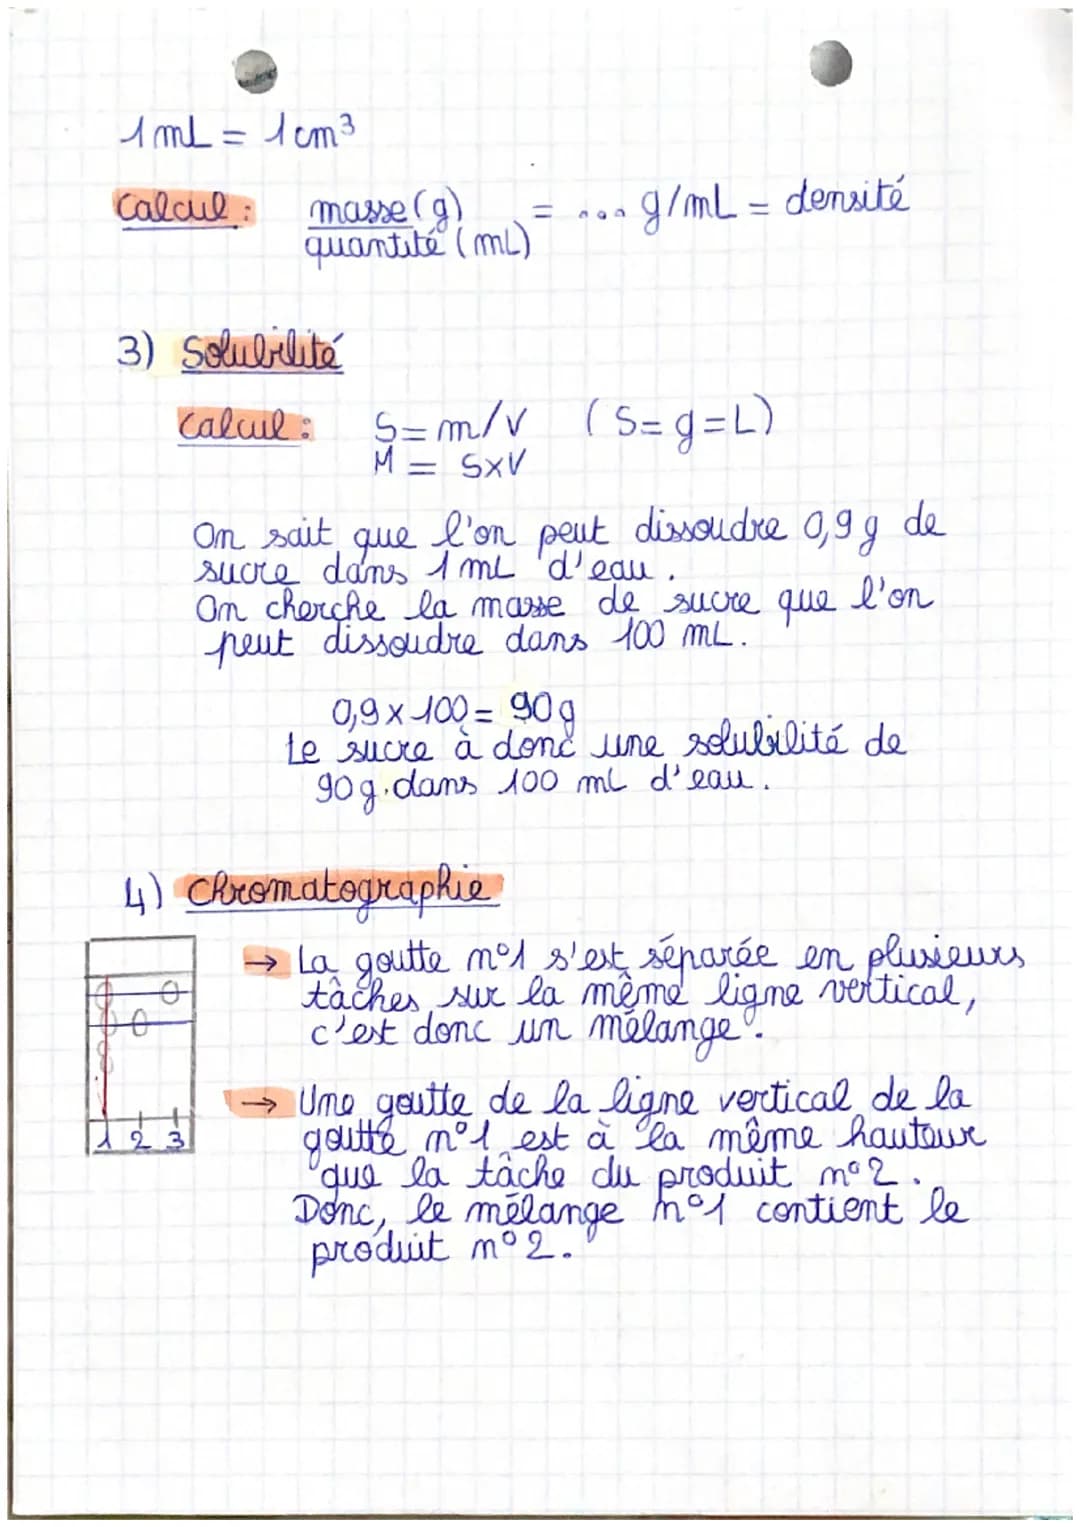 1 mL = 1 cm³
Calcul : masse (g) = ... g/mL = densité
quantité (mL)
3) Solubilité
Calcul : S = m/V (S = g = L)
M = S×V
On sait que l'on peut dissoudre 0,9 g de
sucre dans 1 mL d'eau.
On cherche la masse de sucre que l'on
peut dissoudre dans 100 mL.
0,9 × 100 = 90 g
Le sucre à donc une solubilité de
90 g dans 100 mL d'eau.
4) Chromatographie
→ La goutte n°1 s'est séparée en plusieurs
tâches sur la même ligne vertical,
c'est donc un mélange.
→ Une goutte de la ligne vertical de la
goutte n°1 est à la même hauteur
que la tâche du produit n°2.
Donc, le mélange n°1 contient le
produit n°2.
1 2 3